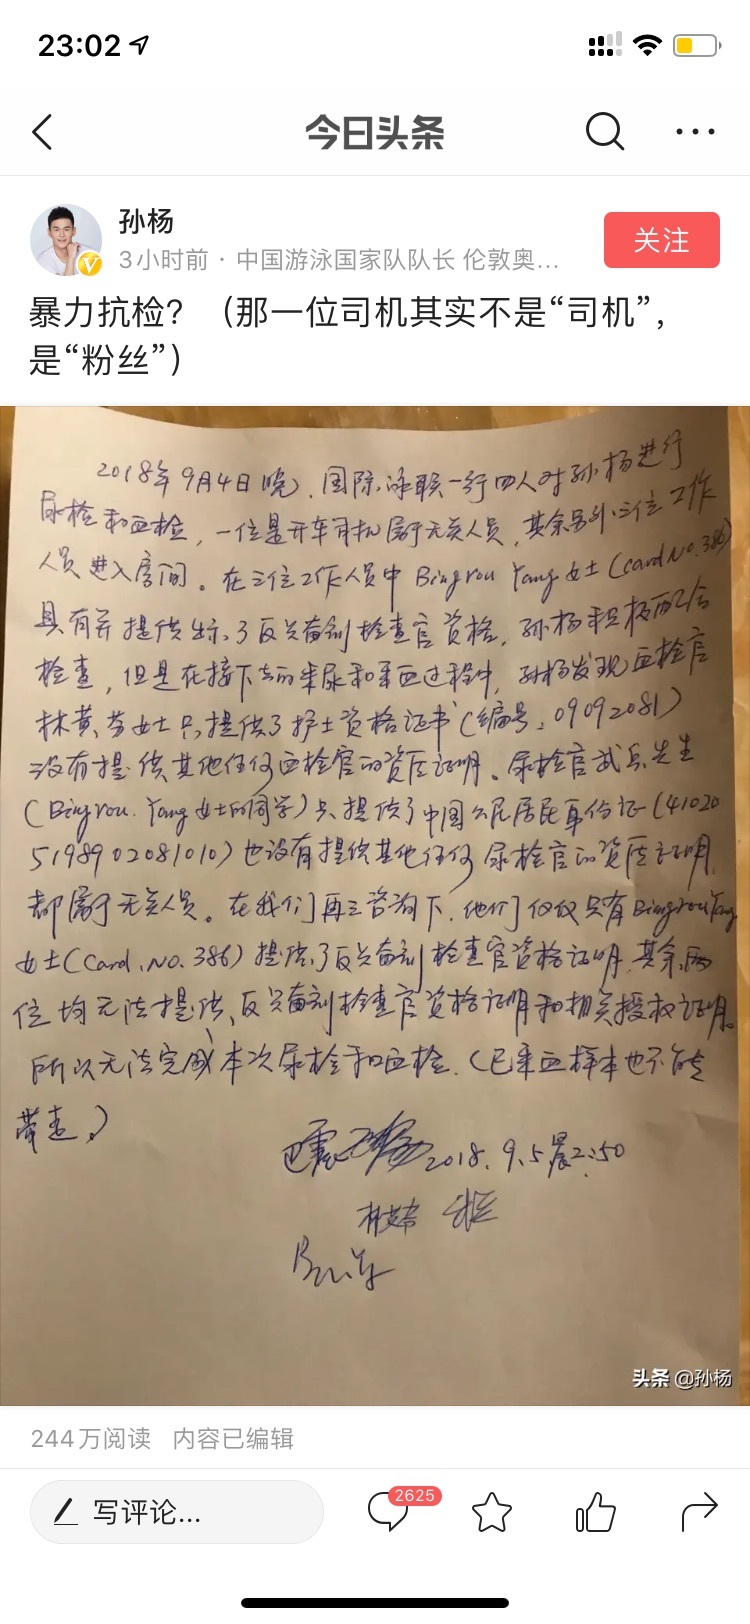 23:02
今日头条
孙杨
3小时前 · 中国游泳国家队队长 伦敦奥...
关注
暴力抗检？（那一位司机其实不是“司机”，
是“粉丝”）
2018年9月4日晚，国际泳联一行四人对孙杨进行
尿检和血检，一位是开车司机属于无关人员，其余另外三位工作
人员进入房间。在三位工作人员中Bingrou Yang女士(card No.386)
具有并提供出示了反兴奋剂检查官资格，孙杨积极配合
检查，但是在接下去的采尿和采血过程中，孙杨发现血检官
林黄芬女士只提供了护士资格证书(编号：09092081)
没有提供其他任何血检官的资质证明。尿检官武兵先生
(Bingrou.Yang女士的同学)只提供了中国公民居民身份证(41020
5198902081010)也没有提供其他任何尿检官的资质证明，
都属于无关人员。在我们再三咨询下，他们仅仅只有Bingrou Yang
女士(Card.No.386)提供了反兴奋剂检查官资格证明，其余两
位均无法提供反兴奋剂检查官资格证明和相关授权证明。
所以无法完成本次尿检和血检.(已采血样本也不能
带走。)
2018.9.5晨2:50
头条 @孙杨
244万阅读 内容已编辑
写评论...
2625